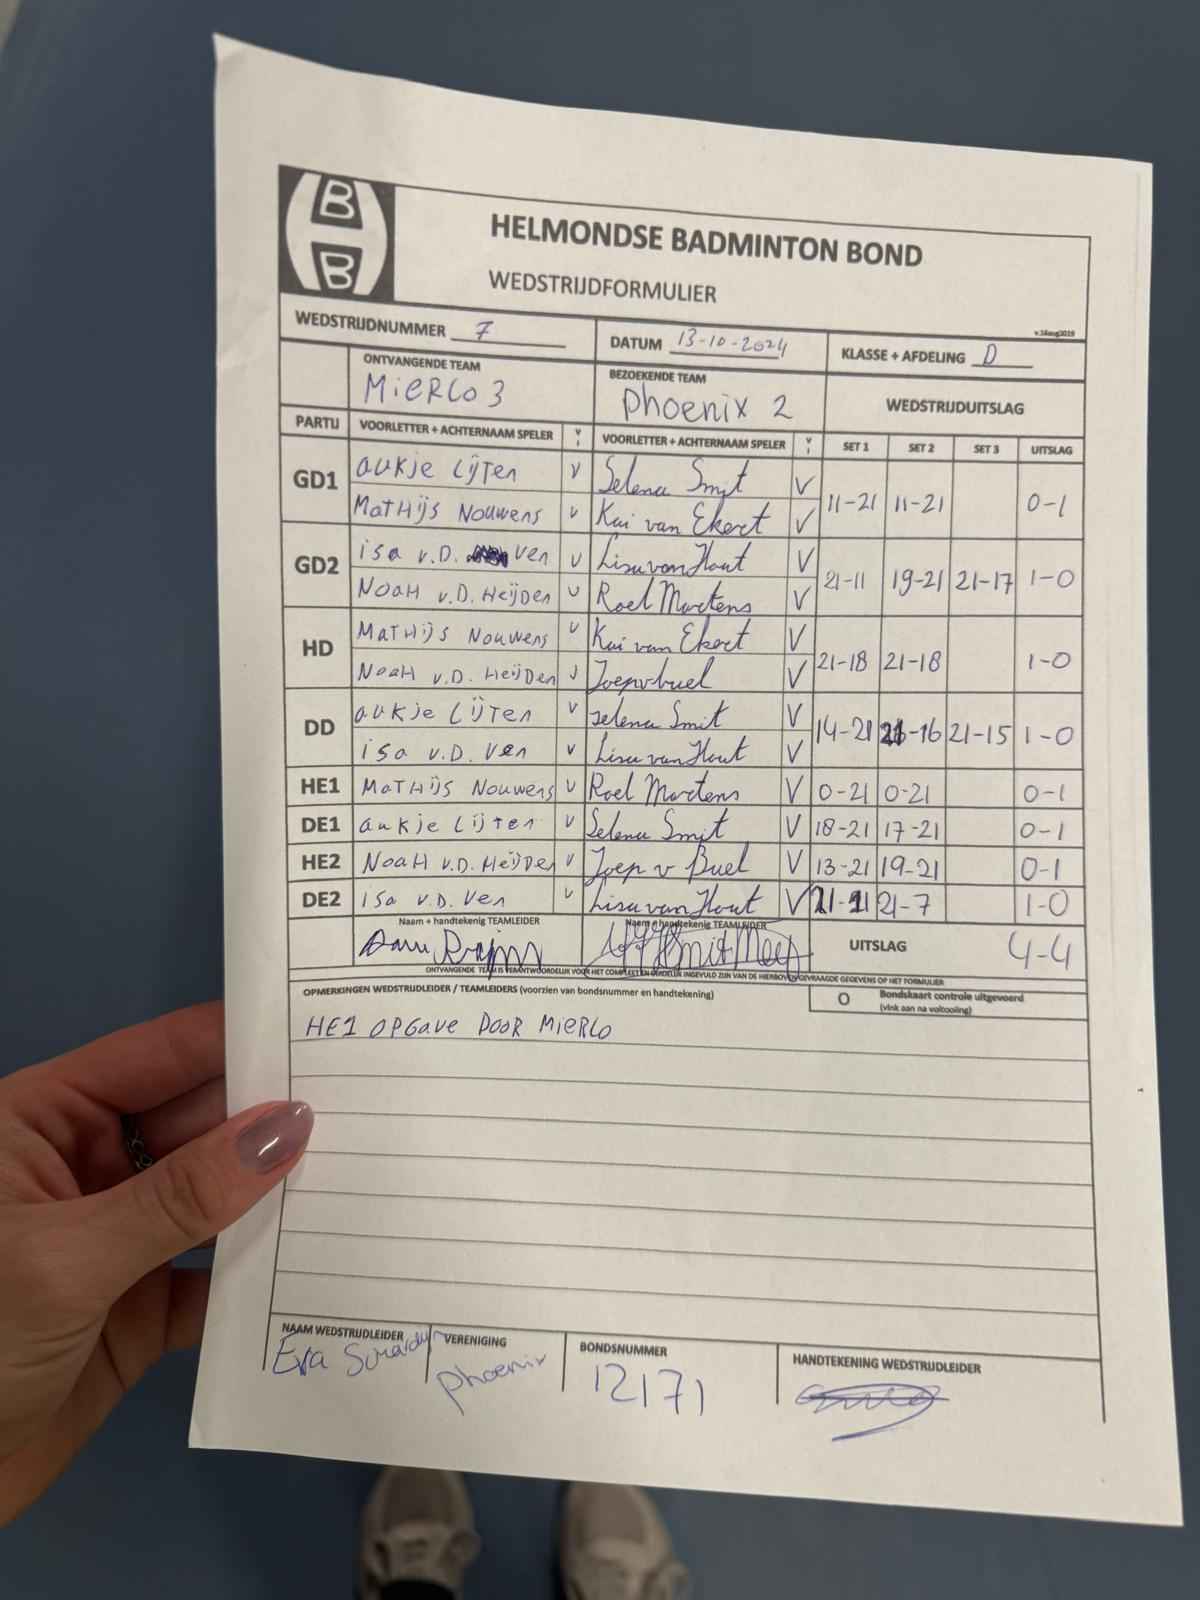 B
B
HELMONDSE BADMINTON BOND
WEDSTRIJDFORMULIER
v.16aug2019
WEDSTRIJDNUMMER 7 DATUM 13-10-2024 KLASSE + AFDELING D
ONTVANGENDE TEAM BEZOEKENDE TEAM
MiERLO 3 Phoenix 2 WEDSTRIJDUITSLAG
PARTIJ VOORLETTER + ACHTERNAAM SPELER V I VOORLETTER + ACHTERNAAM SPELER V I SET 1 SET 2 SET 3 UITSLAG
GD1 aukje Lijten V Selena Smit V 11-21 11-21 0-1
Mathijs Nouwens V Kai van Ekert V
GD2 isa v.D. Ven V Lisa van Hout V 21-11 19-21 21-17 1-0
Noah v.D. Heijden V Roel Martens V
HD Mathijs Nouwens V Kai van Ekert V 21-18 21-18 1-0
Noah v.D. Heijden Joep v buel V
DD aukje Lijten V Selena Smit V 14-21 21-16 21-15 1-0
isa v.D. Ven V Lisa van Hout V
HE1 Mathijs Nouwens V Roel Martens V 0-21 0-21 0-1
DE1 aukje Lijten V Selena Smit V 18-21 17-21 0-1
HE2 Noah v.D. Heijden V Joep v Buel V 13-21 19-21 0-1
DE2 isa v.D. Ven V Lisa van Hout V 21-7 1-0
Naam + handtekenig TEAMLEIDER Naam + handtekenig TEAMLEIDER
UITSLAG 4-4
ONTVANGENDE TEAM IS VERANTWOORDELIJK VOOR HET COMPLEET EN DUIDELIJK INGEVULD ZIJN VAN DE HIERBOVEN GEVRAAGDE GEGEVENS OP HET FORMULIER
OPMERKINGEN WEDSTRIJDLEIDER / TEAMLEIDERS (voorzien van bondsnummer en handtekening) O Bondskaart controle uitgevoerd
(vink aan na voltooiing)
HE1 OPGave DOOR MiERLO
NAAM WEDSTRIJDLEIDER VERENIGING BONDSNUMMER HANDTEKENING WEDSTRIJDLEIDER
Eva Phoenix 12171